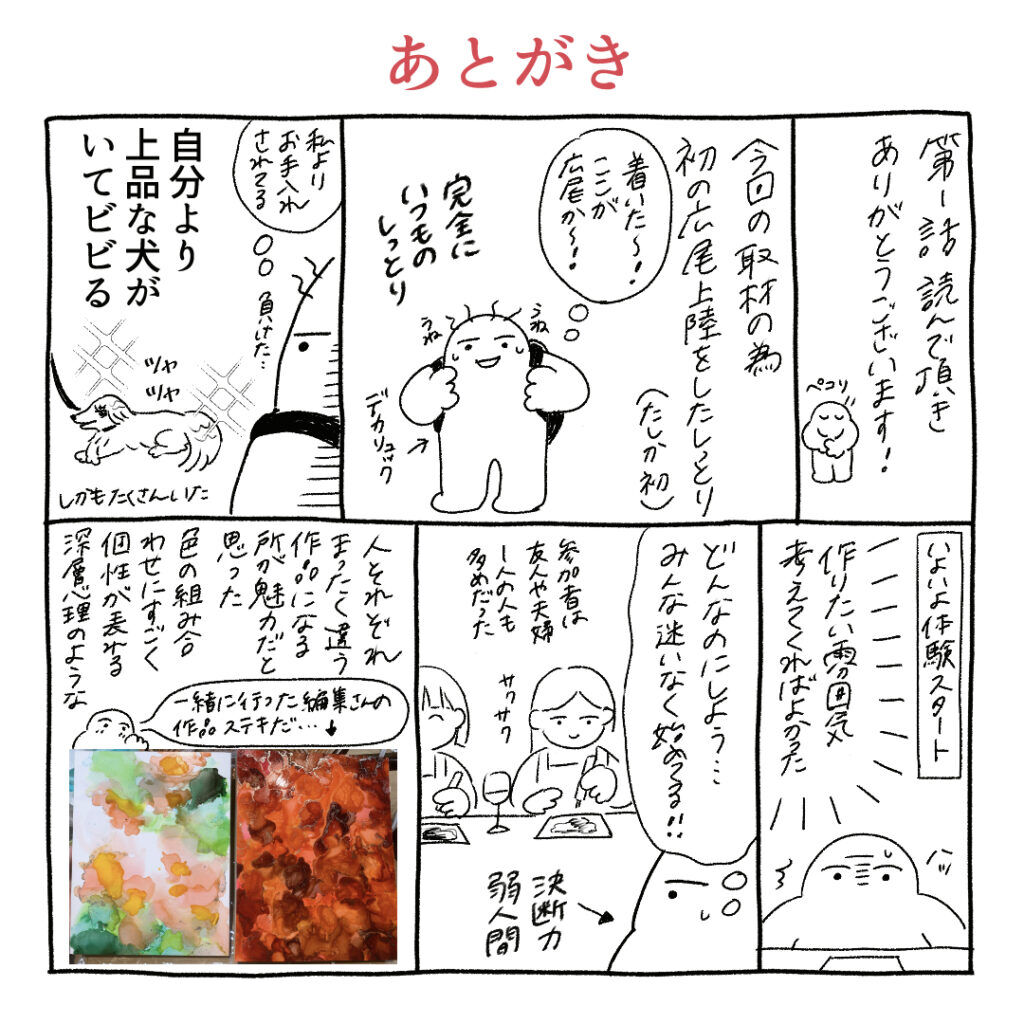 あとがき
第一話 読んで頂き
ありがとうございます!
ペコリ
今回の取材の為
初の広尾上陸をしたしっとり
(たしか初)
着いた〜!
ここが
広尾か〜!
完全に
いつもの
しっとり
うね
うね
デカリュック
私より
お手入れ
されてる
負けた…
自分より
上品な犬が
いてビビる
ツヤ
ツヤ
しかもたくさんいた
いよいよ体験スタート
作りたい雰囲気
考えてくればよかった
ハッ
どんなのにしよう…
みんな迷いなく始めてる!!
参加者は
友人や夫婦
1人の人も
多めだった
サクサク
決断力
弱人間
人それぞれ
まったく違う
作品になる
所が魅力だと
思った
色の組み合
わせにすごく
個性が表れる
深層心理のような
一緒に行った編集さんの
作品ステキだ…↓